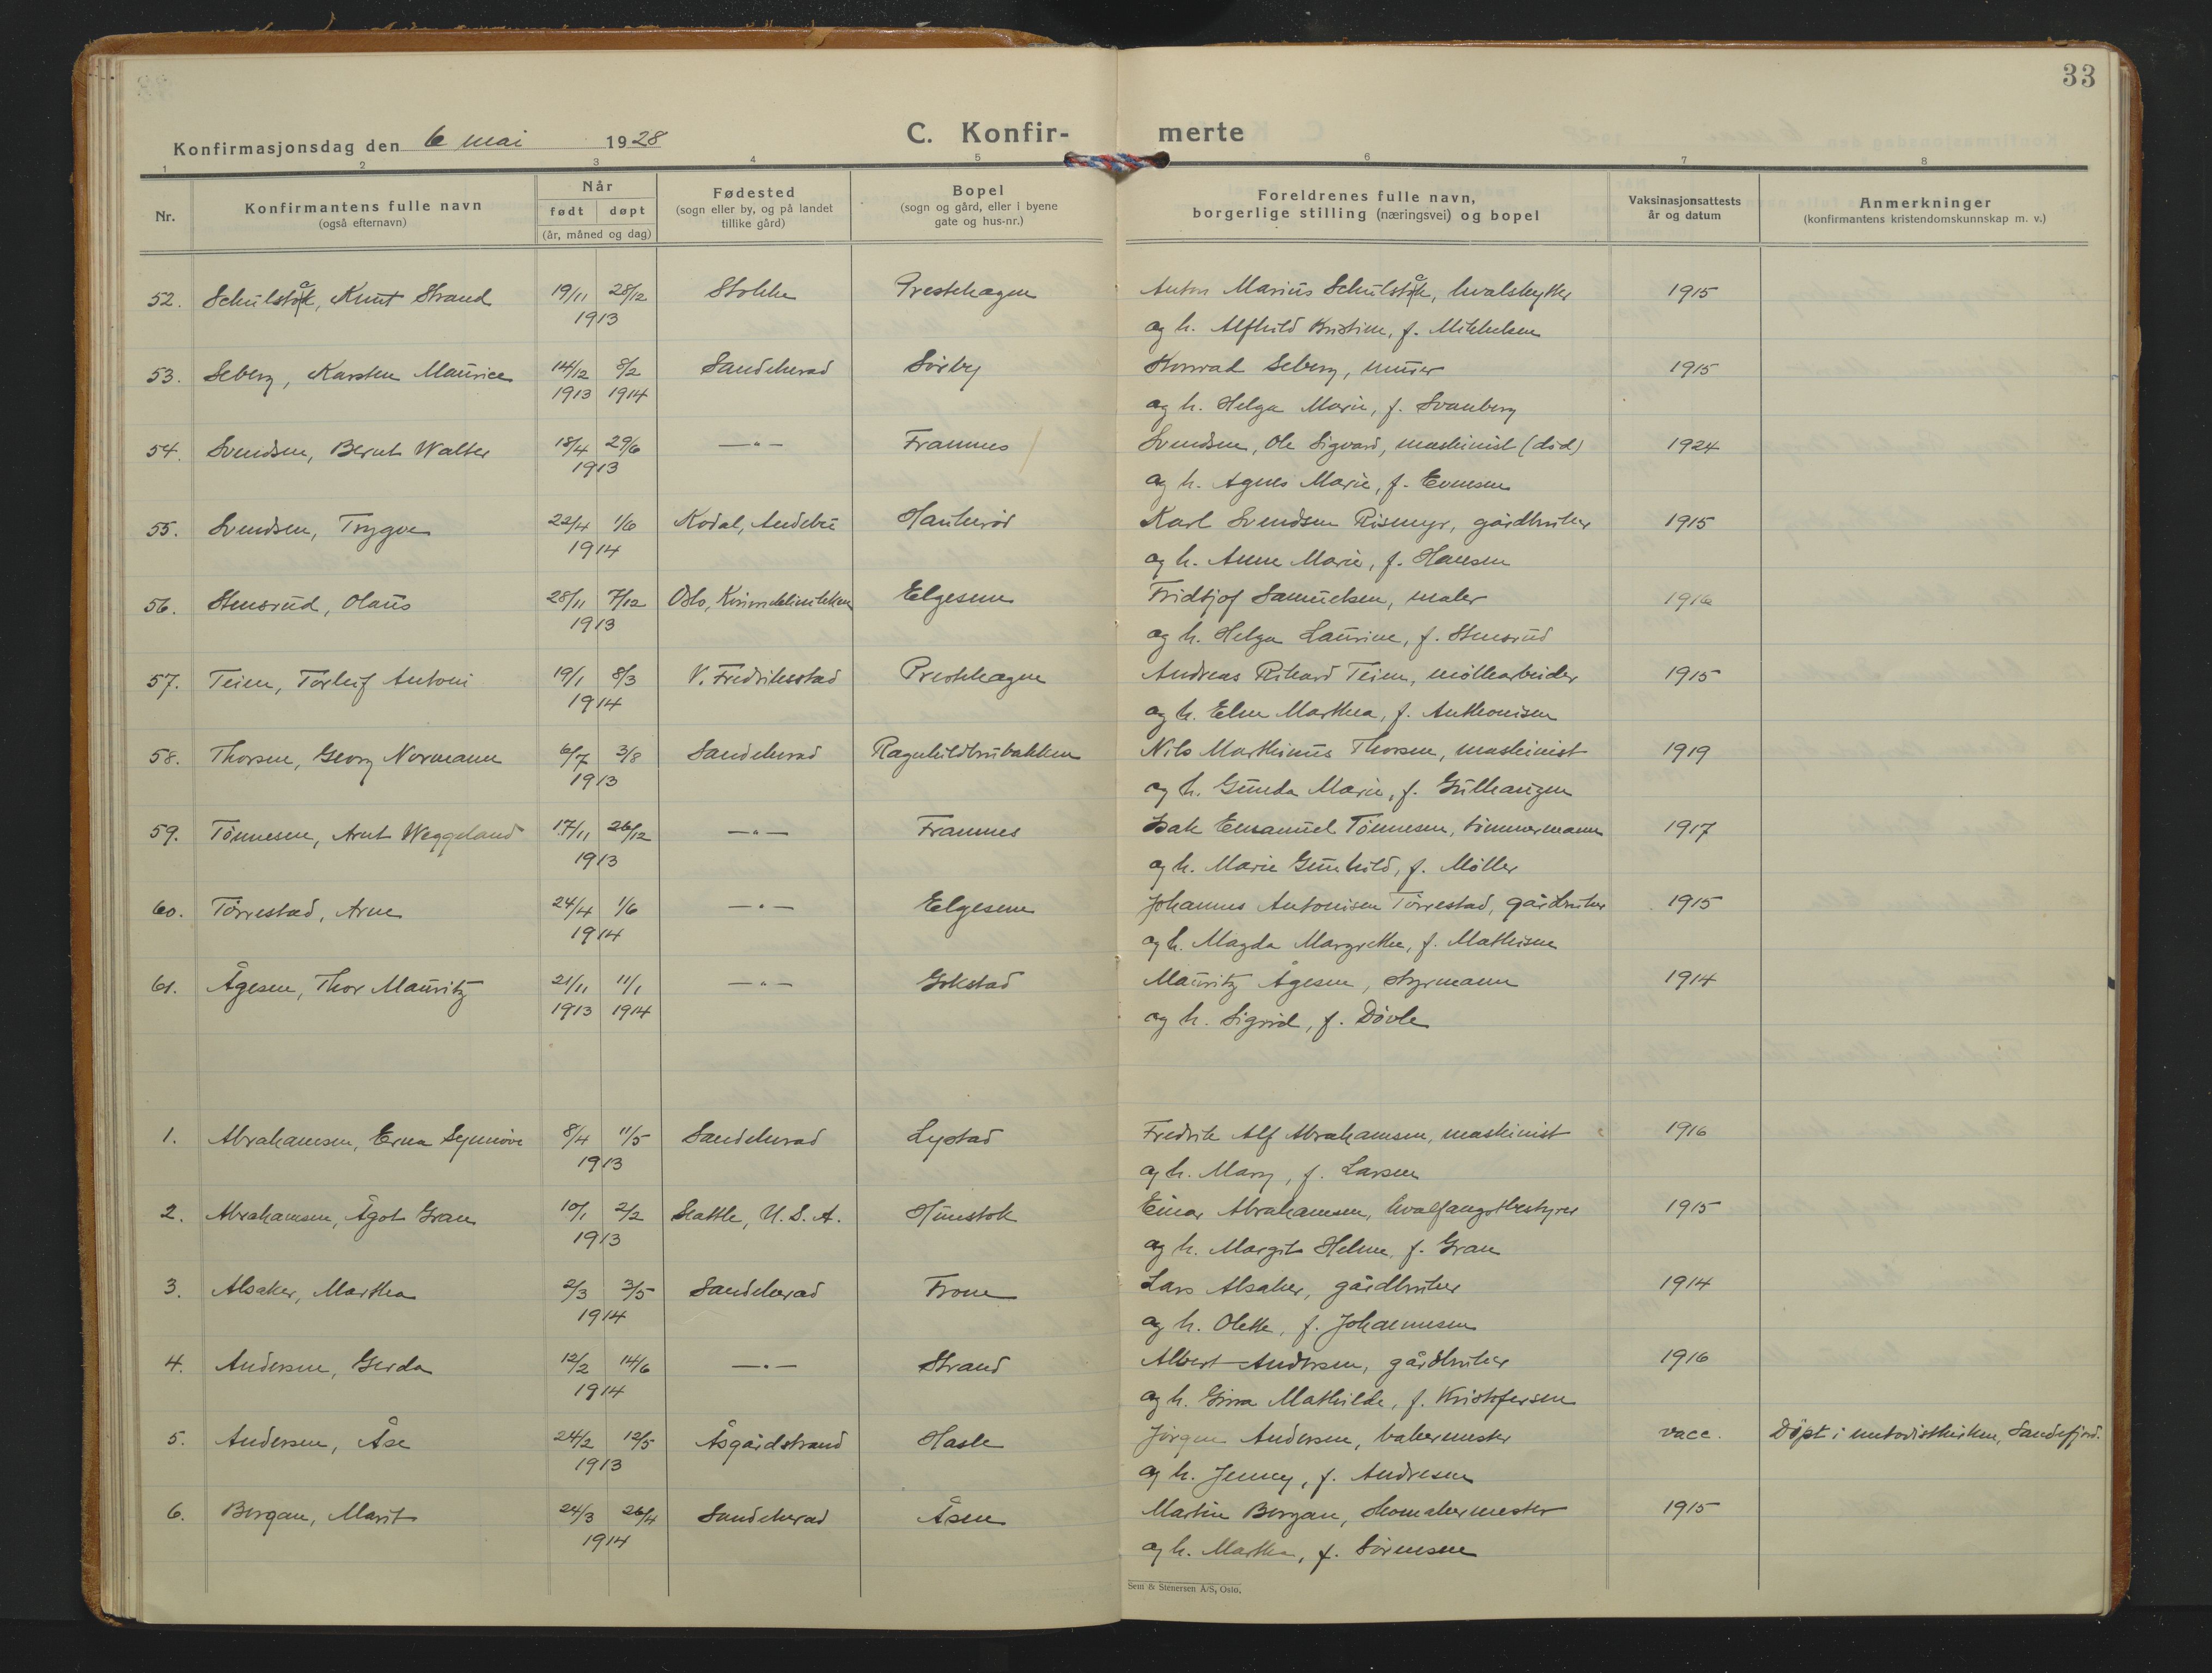 33
Konfirmasjonsdag den 6 mai 1928
C. Konfir- merte
1 2 3 4 5 6 7 8
Nr. Konfirmantens fulle navn (også efternavn) Når født døpt (år, måned og dag) Fødested (sogn eller by, og på landet tillike gård) Bopel (sogn og gård, eller i byene gate og hus-nr.) Foreldrenes fulle navn, borgerlige stilling (næringsvei) og bopel Vaksinasjonsattests år og datum Anmerkninger (konfirmantens kristendomskunnskap m. v.)
52. Schulståk, Knut Strand 19/11 28/12 Stokke Prestehagen Anton Marius Schulståk, hvalskytter 1915
1913 og h. Alfhild Kristine, f. Mikkelsen
53. Seberg, Karsten Maurice 14/12 8/2 Sandeherad Sörby Konrad Seberg, murer 1915
1913 1914 og h. Helga Marie, f. Svanberg
54. Svendsen, Bernt Walter 18/4 29/6 —"— Framnes Svendsen, Ole Sigvard, maskinist (död) 1924
1913 og h. Agnes Marie, f. Evensen
55. Svendsen, Trygve 22/4 1/6 Kodal, Andebu Haukerød Karl Svendsen Rismyr, gårdbruker 1915
1914 og h. Anne Marie, f. Hansen
56. Stensrud, Olaus 28/11 7/12 Oslo, Kvindeklinikken Elgesem Fridtjof Samuelsen, maler 1916
1913 og h. Helga Laurine, f. Stensrud
57. Teien, Torleif Antoni 19/1 8/3 V. Fredrikstad Prestehagen Andreas Rikard Teien, möllearbeider 1915
1914 og h. Elen Marthea, f. Anthonisen
58. Thorsen, Georg Normann 6/7 3/8 Sandeherad Ragnhildbrubakken Nils Marthinius Thorsen, maskinist 1919
1913 og h. Gunda Marie, f. Gulhaugen
59. Tönnesen, Arnt Weggeland 17/11 26/12 —"— Framnes Isak Emanuel Tönnesen, tömmermann 1917
1913 og h. Marie Gunhild, f. Möller
60. Törrestad, Arne 24/4 1/6 —"— Elgesem Johannes Antonisen Törrestad, gårdbruker 1915
1914 og h. Magda Margrethe, f. Mathisen
61. Ågesen, Thor Mauritz 21/11 11/1 —"— Gokstad Mauritz Ågesen, styrmann 1914
1913 1914 og h. Sigrid, f. Dövle
1. Abrahamsen, Erna Synnöve 8/4 11/5 Sandeherad Lystad Fredrik Alf Abrahamsen, maskinist 1916
1913 og h. Mary, f. Larsen
2. Abrahamsen, Ågot Gran 10/1 2/2 Seattle, U.S.A. Hunstok Einar Abrahamsen, hvalfangstbestyrer 1915
1913 og h. Margit Helene, f. Gran
3. Alsaker, Martha 2/3 3/5 Sandeherad From Lars Alsaker, gårdbruker 1914
1914 og h. Olette, f. Johannesen
4. Andersen, Gerda 12/2 14/6 —"— Strand Albert Andersen, gårdbruker 1916
1914 og h. Gina Mathilde, f. Kristofersen
5. Andersen, Åse 24/2 12/5 Åsgårdstrand Hasle Jörgen Andersen, bakermester vacc. Döpt i metodistkirken, Sandefjord.
1913 og h. Jenny, f. Andresen
6. Borgan, Marit 24/3 26/4 Sandeherad Åsen Martin Borgan, skomakermester 1915
1914 og h. Martha, f. Sörensen
Sem & Stenersen A/S, Oslo.